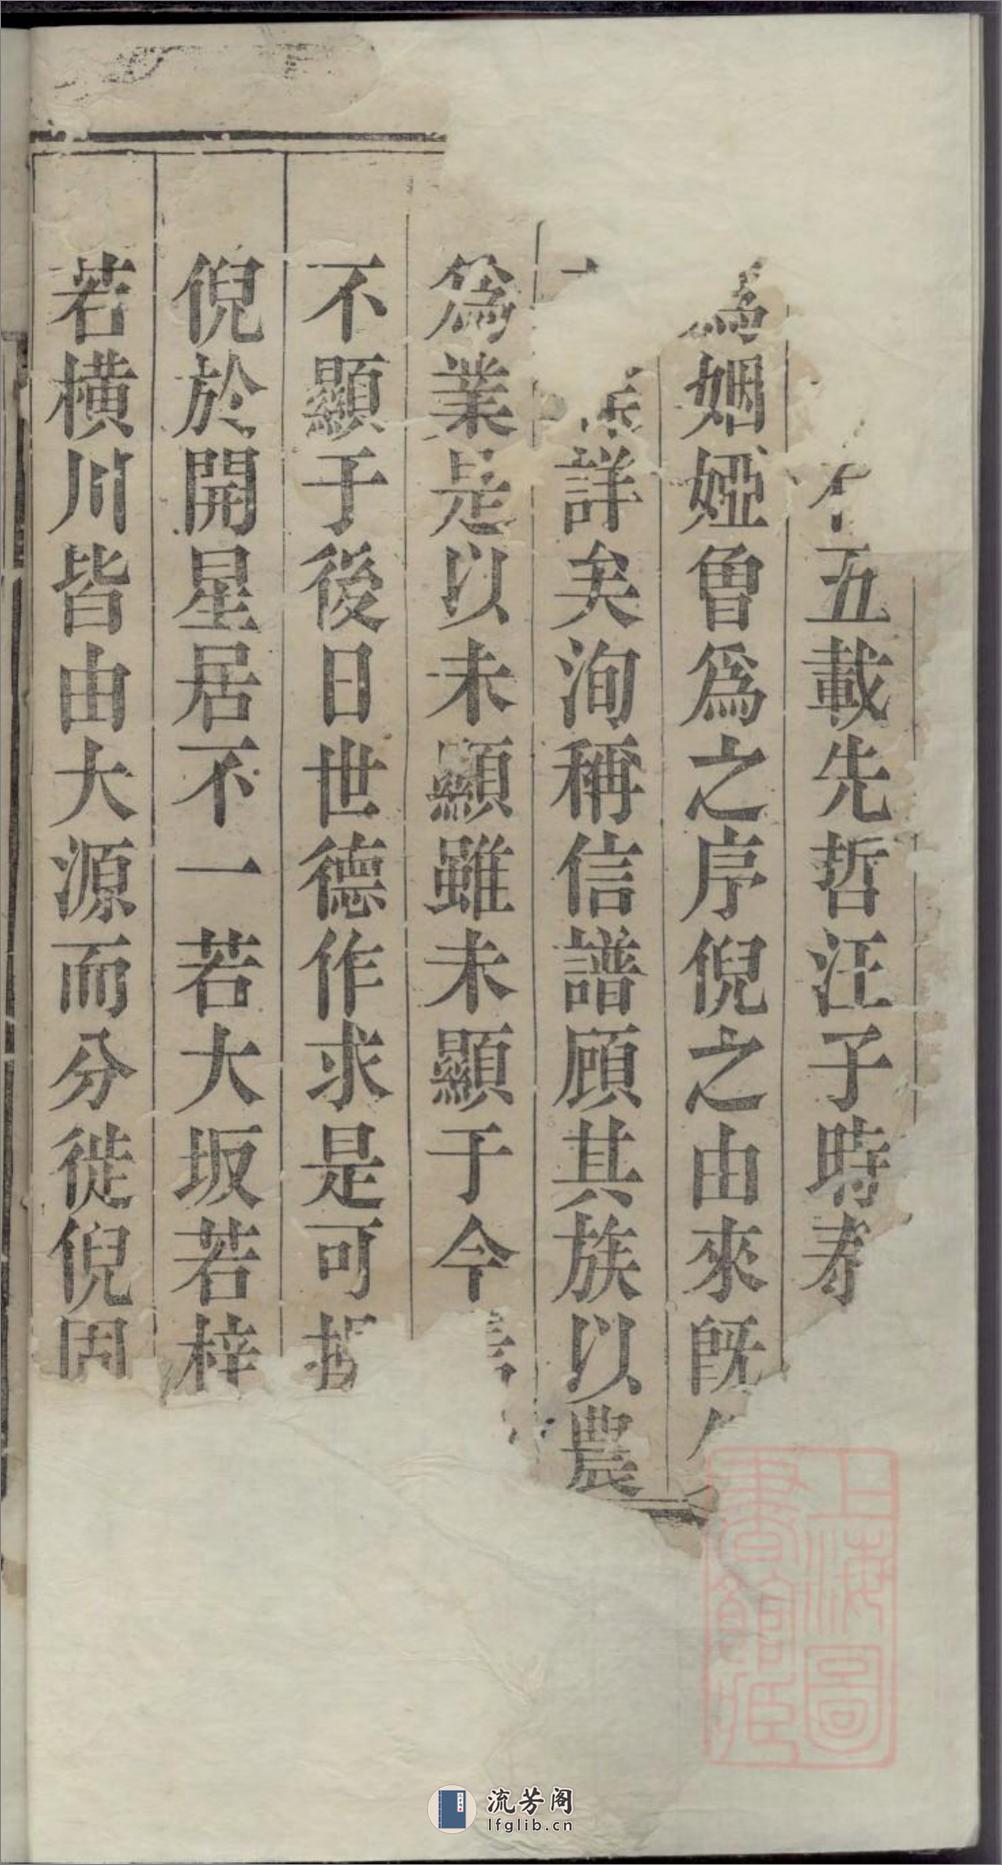 五載先哲汪子時春
爲姻婭曾爲之序倪之由來旣
詳矣洵稱信譜顧其族以農
爲業是以未顯雖未顯于今
不顯于後日世德作求是可
倪於開星居不一若大坂若梓
若横川皆由大源而分徙倪
上海圖
書館藏
流芳阁
lfglib.cn